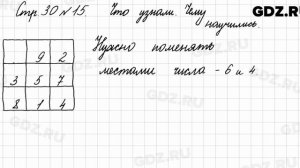 Стр. 30 № 15. Что узнали. Чему
научились.
9 2
3 5 7
8 1 4
Нужно поменять
местами числа - 6 и 4.
GDZ.RU
GDZ.RU
GDZ.RU
GDZ.RU